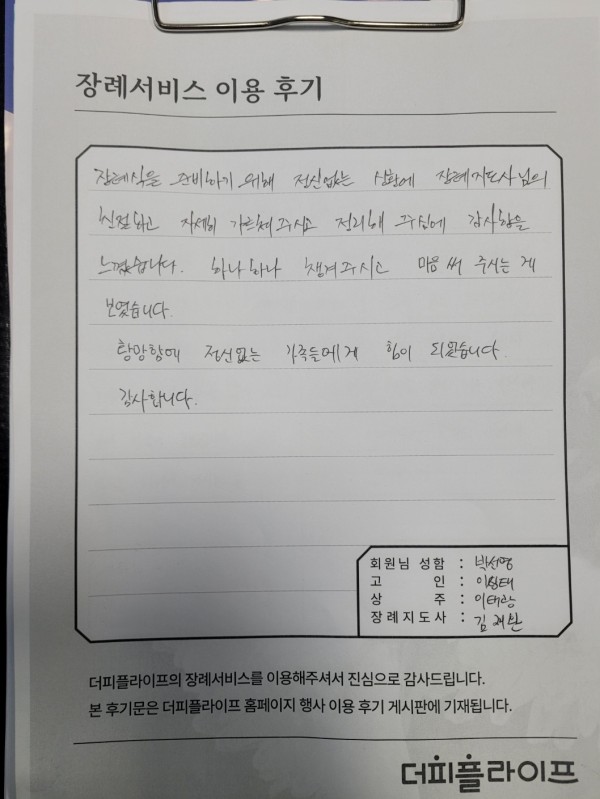 장례서비스 이용 후기
장례식을 준비하기 위해 정신없는 상황에 장례지도사님의
친절하고 자세히 가르쳐주시고 정리해 주심에 감사함을
느꼈습니다. 하나하나 챙겨주시고 마음 써 주시는 게
보였습니다.
황망함에 정신없는 가족들에게 힘이 되었습니다.
감사합니다.
회원님 성함 : 박선영
고 인 : 이상태
상 주 : 이태랑
장례지도사 : 김재환
더피플라이프의 장례서비스를 이용해주셔서 진심으로 감사드립니다.
본 후기문은 더피플라이프 홈페이지 행사 이용 후기 게시판에 기재됩니다.
더피플라이프